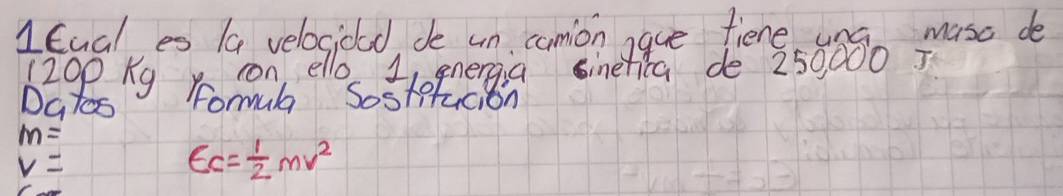 1 Cual es la velocidad de un camión que tiene una masa de
1200 Kg y con ello 1 energia sinetica de 250,000 J
Datos Formula Sostitución
m=
v= Ec=½mv²